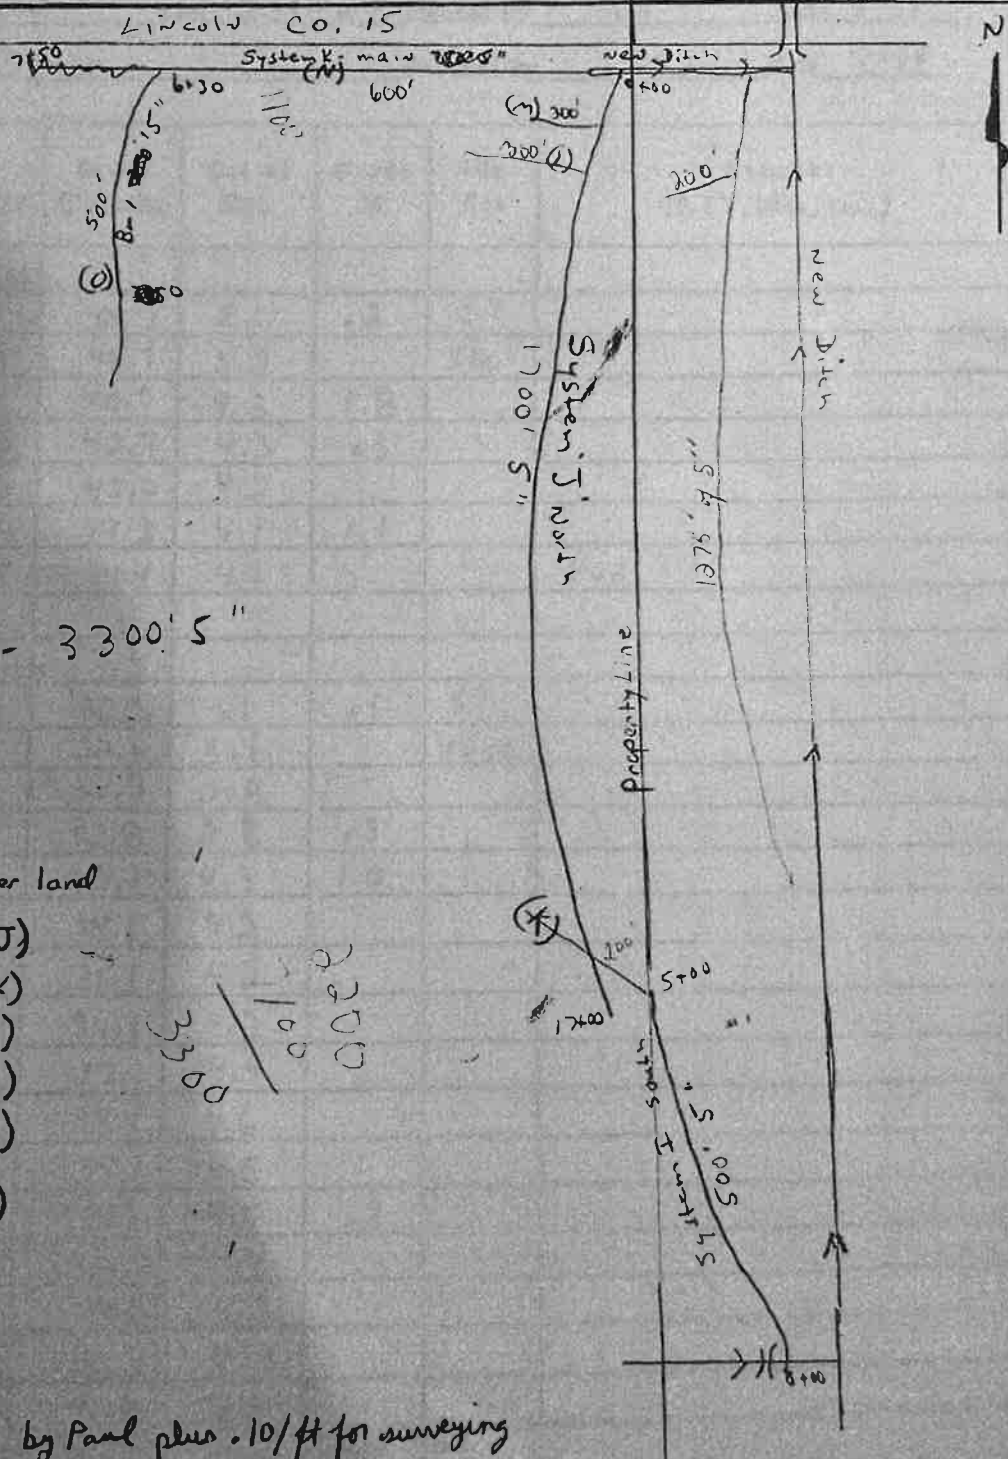 Lincoln CO. 15
N
7+50
System K: main
New Ditch
(N)
6+30
600'
0+00
1100
(M) 300'
300' (L)
200'
500'
B-1 15"
(O)
50
New Ditch
System 'J' North
1700' 5"
1075' of 5"
- 3300' 5"
property line
er land
J)
200'
5+00
17+00
2200
1100
3300
500' 5"
System I South
0+00
by Paul plus .10/ft for surveying